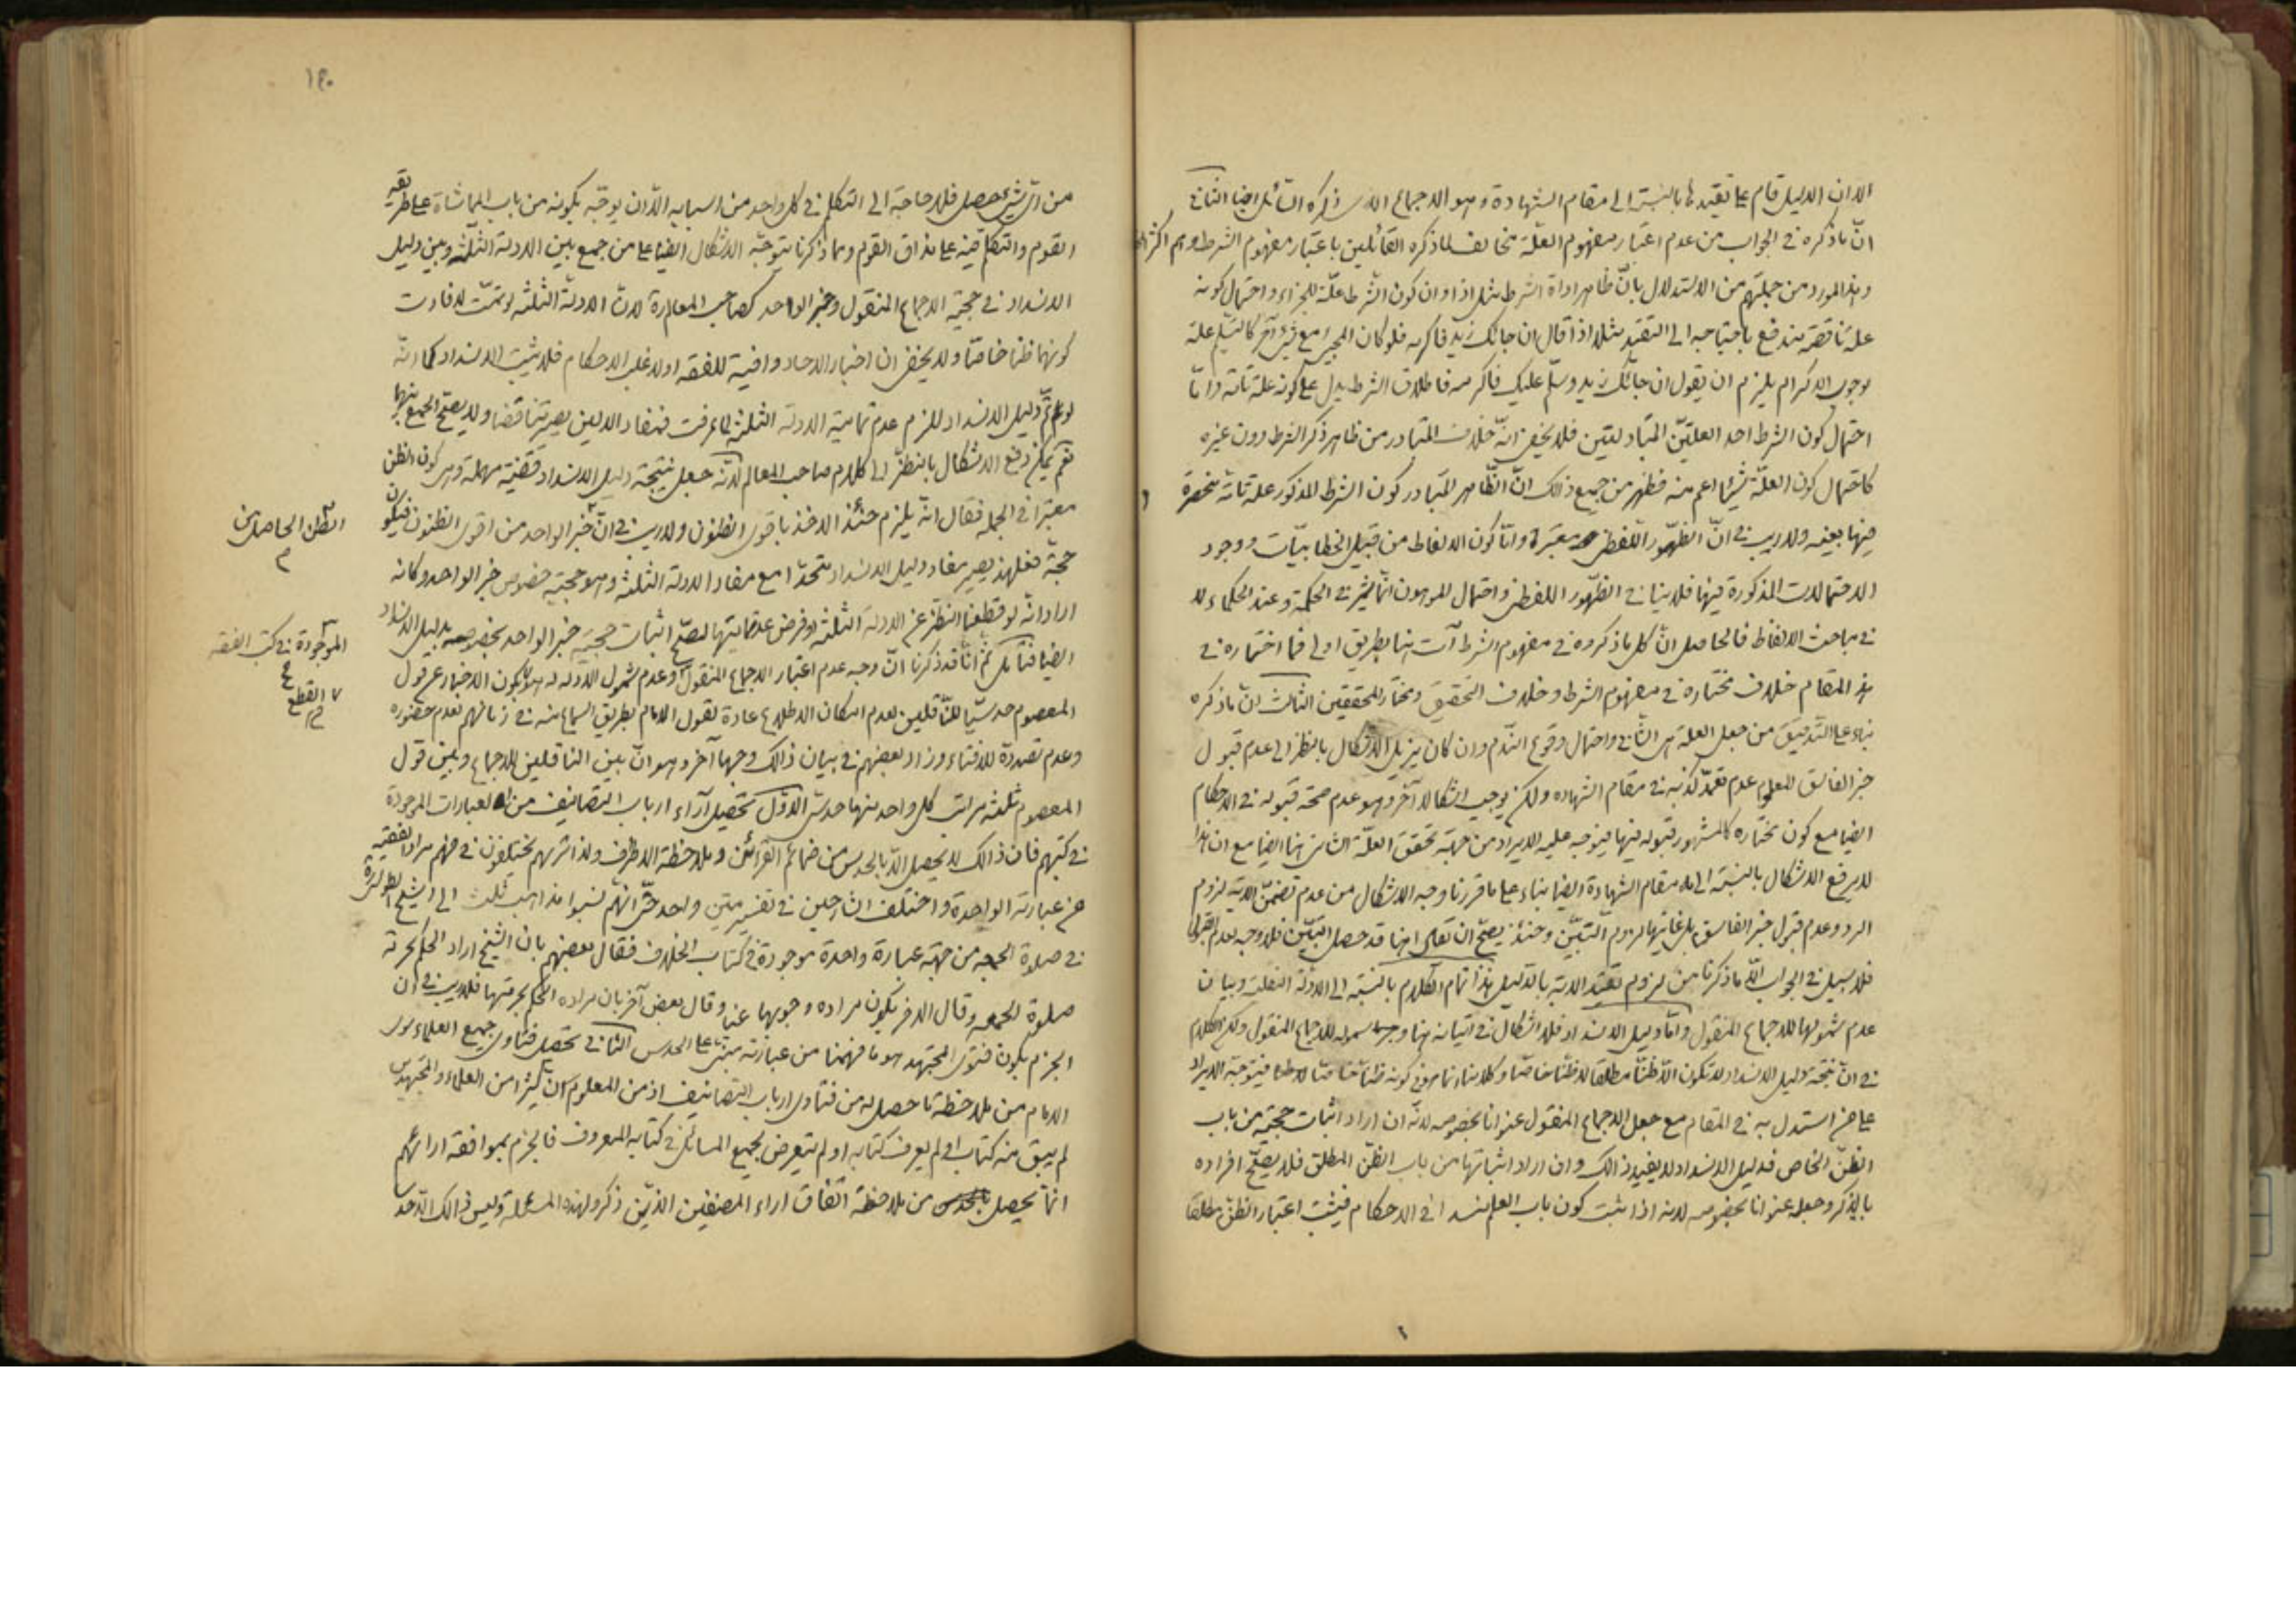 الا ان الدليل قام على تقييدها بالنسبة الى مقام الشهادة وهو الاجماع الذى ذكره القائل ايضا الثانى
انّ ما ذكره فى الجواب من عدم اعتبار مفهوم العلّة مخالف لما ذكره القائلين باعتبار مفهوم الشرط وهم اكثر
وهذا المورد من جملتهم من الاستدلال بانّ ظاهر اداة الشرط مثل اذا وان كون الشرط علّة للجزاء واحتمال كونه
علة ناقصة مندفع باحتياجه الى التقييد مثلا اذا قال ان جائك زيد فاكرمه فلو كان المجيئ مع شيئ آخر كالتسليم علة
لوجوب الاكرام يلزم ان يقول ان جائك زيد وسلّم عليك فاكرمه فاطلاق الشرط يدل على كونه علة تامّة وامّا
احتمال كون الشرط احد العلتين المتبادلتين فلا يخفى انه خلاف المتبادر من ظاهر ذكر الشرط دون غيره
كاحتمال كون العلّة شيئا اعم منه فظهر من جميع ذلك انّ الظاهر المتبادر كون الشرط المذكور علة تامّة منحصرة
فيها بعينه ولا ريب فى انّ الظهور اللفظى معتبرة وامّا كون الالفاظ من قبيل الخطابيات ووجود
الاحتمالات المذكورة فيها فلا ينافى الظهور اللفظى واحتمال الموهون انما يثمر فى الحكمة وعند الحكماء لا
فى مباحث الالفاظ فالحاصل انّ كل ما ذكروه فى مفهوم الشرط آت هنا بطريق اولى فما اختاره فى
هذا المقام خلاف مختاره فى مفهوم الشرط وخلاف التحقيق ومختار المحققين الثالث انّ ما ذكره
بناء على التدقيق من جعل العلة هى الثانى واحتمال وقوع الندم وان كان يزيل الاشكال بالنظر الى عدم قبول
خبر الفاسق المعلوم عدم تعمد كذبه فى مقام الشهاده ولكن يوجب اشكالا آخر وهو عدم صحة قبوله فى الاحكام
ايضا مع كون مختاره كالمشهور قبوله فيها فيتوجه عليه الايراد من جهة تحقق العلّة الثانى هنا ايضا مع ان هذا
لا يرفع الاشكال بالنسبة الى مقام الشهادة ايضا بناء على ما قررنا وجه الاشكال من عدم تضمن الاية لزوم
الرد وعدم قبول خبر الفاسق بل غايتها لزوم التبيّن وحينئذ يصحّ ان يقال انها قد حصل التبيّن فلا وجه لعدم القبول
فلا سبيل فى الجواب الّا ما ذكرنا من لزوم تقييد الاية بالدليل هذا تمام الكلام بالنسبة الى الادلّة النقلية وبيان
عدم شمولها للاجماع المنقول وامّا دليل الانسداد فلا اشكال فى اتيانه هنا وشموله للاجماع المنقول ولكن الكلام
فى انّ نتيجة دليل الانسداد لا تكون الّا ظنّا مطلقا لا ظنّا خاصّا وكلامنا انما هو فى كونه ظنّا خاصّا فيتوجّه الايراد
على من استدل به فى المقام مع جعل الاجماع المنقول عنوانا بخصوصه لانّه ان اراد اثبات حجّيته من باب
الظنّ الخاص فدليل الانسداد لا يفيد ذالك وان اراد اثباتها من باب الظنّ المطلق فلا يصحّ افراده
بالذكر وجعله عنوانا بخصوصه لانه اذا ثبت كون باب العلم منسدا فى الاحكام فيثبت اعتبار الظنّ مطلقا
١٤٠
من اىّ شيئ حصل فلا حاجة الى التكلم فى كل واحد من اسبابه الّا ان يوجّه بكونه من باب المماشاة على طريقة
القوم والتكلّم فيه على مذاق القوم ومما ذكرنا يتوجّه الاشكال ايضا على من جمع بين الادلة الثلثة وبين دليل
الانسداد فى حجّية الاجماع المنقول وخبر الواحد كصاحب المعالم لانّ الادلّة الثلثة لو تمّت لافادت
كونهما ظنّا خاصّا ولا يخفى ان اخبار الاحاد وافية للفقه او لاغلب الاحكام فلا يثبت الانسداد كما انّه
لو تمّ دليل الانسداد للزم عدم تمامية الادلة الثلثة لما عرفت فمفاد الدليلين يصير متناقضا ولا يصحّ الجمع بينهما
نعم يمكن دفع الاشكال بالنظر الى كلام صاحب المعالم لانّه جعل نتيجة دليل الانسداد قضية مهملة وهى كون الظن
معتبرا فى الجمله فقال انه يلزم حينئذ الاخذ باقوى الظنون ولا ريب فى انّ خبر الواحد من اقوى الظنون فيكون
الظن الحاصل من
حجة فعلى هذا يصير مفاد دليل الانسداد متحدّا مع مفاد الادلة الثلثة وهو حجية خصوص خبر الواحد وكانه
اراد انّه لو قطعنا النظر عن الادلة الثلثة وفرض عدم تماميتها لصحّ اثبات حجية خبر الواحد بخصوصه بدليل الانسداد
ايضا فتأمل ثم انّا قد ذكرنا انّ وجه عدم اعتبار الاجماع المنقول وعدم شمول الادلة له هو كون الاخبار عن قول
المعصوم حدسيّا للنّاقلين لعدم امكان الاطلاع عادة لقول الامام بطريق السماع منه فى زمانهم لعدم حضوره
وعدم تصديه للافتاء وزاد بعضهم فى بيان ذالك وجها آخر وهو انّ بين الناقلين للاجماع وبين قول
المعصوم ثلثة مراتب كل واحد منها حدس الاوّل تحصيل آراء ارباب التصانيف من العبارات الموجودة
الموجودة فى كتب الفقه
القطع
فى كتبهم فان ذالك لا يحصل الّا بالحدس من ضمائم القرائن وملاحظة الاطراف ولذا تريهم يختلفون فى فهم مراد الفقيه
من عبارته الواحدة واختلف الشارحين فى تفسير متن واحد حتّى انّهم نسبوا مذاهب ثلث الى الشيخ
فى صلوة الجمعه من جهة عبارة واحدة موجودة فى كتاب الخلاف فقال بعضهم بان الشيخ اراد الحكم بحرمة
صلوة الجمعه وقال الاخر بكون مراده وجوبها عينا وقال بعض آخر بان مراده الحكم بحرمتها فلا ريب فى ان
الجزم بكون فتوى المجتهد هو ما فهمنا من عبارته مبتنى على الحدس الثانى تحصيل فتاوى جميع العلماء سوى
الامام من ملاحظة ما حصل له من فتاوى ارباب التصانيف اذ من المعلوم انّ كثيرا من العلماء والمجتهدين
لم يبق منه كتاب او لم يعرف كتابه او لم يتعرض لجميع المسائل فى كتابه المعروف فالجزم بموافقة ارائهم
انّما يحصل من ملاحظة اتفاق اراء المصنفين الذين ذكروا هذه المسئلة وليس ذالك الّا حد